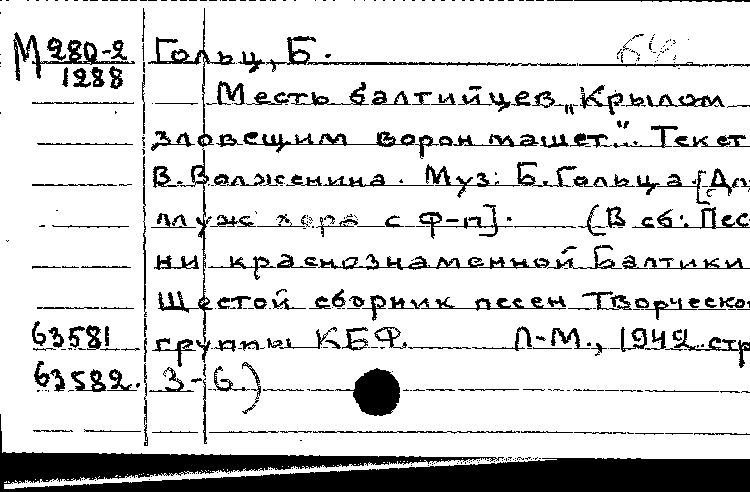 М 280-2 Гольц, Б. 64
1288
Месть балтийцев „Крылом
зловещим ворон машет.."... Текст
В. Волженина. Муз: Б. Гольца [Дл
муж хора с ф-п]. (В сб: Пес
ни краснознаменной Балтики
Шестой сборник песен Творческо
63581 группы КБФ. Л-М., 1942 стр
63582. 3-6.)